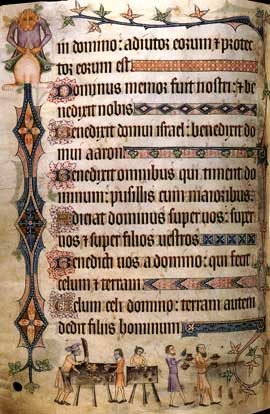 in domino: adiutor eorum ⁊ prote
tor eorum est
Dominus memor fuit nostri: ⁊ be
nedixit nobis
Benedixit domui israel: benedixit do
mui aaron
Benedixit omnibus qui timent do
minum: pusillis cum maioribus
Adiciat dominus super vos: super
vos ⁊ super filios vestros
Benedicti vos a domino: qui fecit
celum ⁊ terram
Celum celi domino: terram autem
dedit filiis hominum